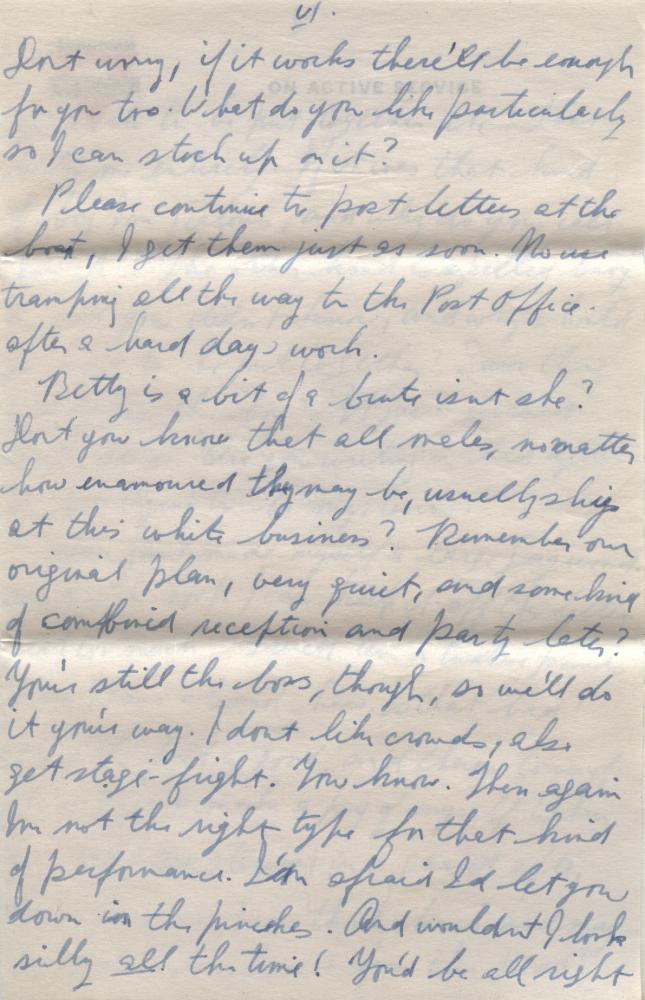 VI.
ON ACTIVE SERVICE
Dont worry, if it works there'll be enough
for you too. What do you like particularly
so I can stock up on it?
Please continue to post letters at the
boat, I get them just as soon. No use
tramping all the way to the Post Office.
after a hard days work.
Betty is a bit of a brute isnt she?
Dont you know that all males, no matter
how enamoured they may be, usually shy
at this white business? Remember our
original plan, very quiet, and some kind
of combined reception and party later?
You're still the boss, though, so we'll do
it your way. I dont like crowds, also
get stage-fright. You know. Then again
Im not the right type for that kind
of performance. I'm afraid I'd let you
down in the pinches. And wouldn't I look
silly all the time! You'd be all right